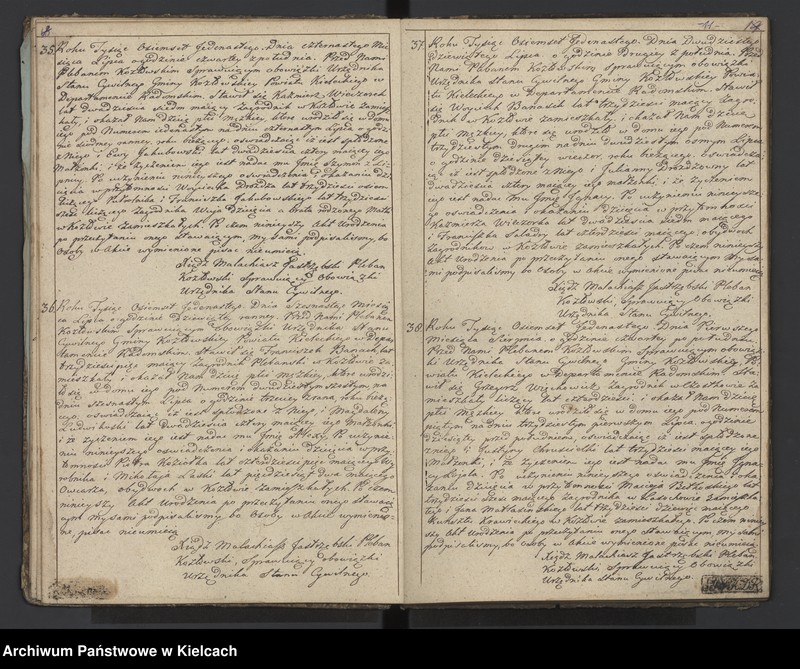 35. Roku Tysiąc Osiemset Jedenastego. Dnia czternastego Mie-
siąca Lipca o godzinie czwartey z południa. Przed Nami
Plebanem Kozłowskim Sprawuiącym obowiązki Urzędnika
Stanu Cywilnego Gminy Kozłowskiy Powiatu Kieleckiego w
Departamencie Radomskim, Stawił się Kazimierz Wieczorek
lat dwadzieścia siedm maiący zagrodnik w Kozłowie zamiesz-
kały, i okazał Nam dziecię płci męzkiey, które urodziło się w domu
iego pod Numerem iedenastym na dniu czternastym Lipca o godzi-
nie siodmey ranney, roku bieżącego, oświadczaiąc iż iest spłodzone
z Niego i Ewy Jakubowski lat dwadzieścia cztery maiącey iego
Małżonki, i że życzeniem iego iest nadać mu Jmię Szymon z Li-
pnicy. Po uczynieniu ninieyszego oświadczenia i okazaniu dzie-
cięcia w przytomności Woyciecha Drozdza lat trzydzieści osiem
liczącego i Franciszka Jakubowskiego lat trzydzieści
sześć liczącego zagrodnika Wuia Dziecięcia a brata rodzonego Matki
w Kozłowie zamieszkałych. Po czem ninieyszy Akt Urodzenia
po przeczytaniu onego Stawaiącym, my sami podpisaliśmy, bo
Osoby w Akcie wymienione pisać nieumieią.
Xiądz Malachiasz Jastrzębski Pleban
Kozłowski Sprawuiący Obowiązki
Urzędnika Stanu Cywilnego.
36. Roku Tysiąc Osiemset Jedenastego. Dnia Szesnastego Miesią-
ca Lipca o godzinie dziesiątey ranney. Przed Nami Plebanem
Kozłowskim Sprawuiącym Obowiązki Urzędnika Stanu
Cywilnego Gminy Kozłowskiy Powiatu Kieleckiego w Depar-
tamencie Radomskim. Stawił się Franciszek Banasik lat
trzydzieści maiący zagrodnik Plebański w Kozłowie za-
mieszkały, i okazał Nam dziecię płci męzkiey, które urodzi-
ło się w domu iego pod Numerem dwudziestym szóstym na
dniu szesnastym Lipca o godzinie trzeciey zrana, roku bieżą-
cego, oświadczaiąc iż iest spłodzone z Niego, i Magdaleny
Ludwikoski lat dwadzieścia cztery maiącey iego Małżonki
i że życzeniem iego iest nadać mu Jmię Alexy. Po uczynie-
niu ninieyszego oświadczenia i okazaniu dziecięcia w przy-
tomności Piotra Koziołka lat czterdzieści maiącego Wy-
robnika i Mikołaja Laski lat pięćdziesiąt dwa maiącego
Owczarza, obydwóch w Kozłowie zamieszkałych. Po czem
ninieyszy Akt Urodzenia po przeczytaniu onego stawaią-
cym My sami podpisaliśmy, bo Osoby w Akcie wymienio-
ne, pisać nieumieią
Xiądz Malachiasz Jastrzębski Pleban
Kozłowski, Sprawuiący Obowiązki
Urzędnika Stanu Cywilnego.
37. Roku Tysiąc Osiemset Jedenastego. Dnia Dwudziestego
Dziewiątego Lipca o godzinie Drugiey z południa. Przed
Nami Plebanem Kozłowskim Sprawuiącym obowiązki
Urzędnika Stanu Cywilnego Gminy Kozłowskiy Powia-
tu Kieleckiego w Departamencie Radomskim. Stawił
się Woyciech Banasik lat trzydzieści maiący zagro-
dnik w Kozłowie zamieszkały, i okazał Nam dziecię
płci męzkiey, które się urodziło w domu iego pod Numerem
trzydziestym drugim na dniu dwudziestym osmym Lipca
o godzinie dziesiątey wieczor, roku bieżącego, oświadcza-
iąc iż iest spłodzone z Niego i Julianny Drozdzowny lat
dwadzieścia cztery maiącey iego małżonki, i że życzeniem
iego iest nadać mu Jmię Jgnacy. Po uczynieniu ninieysze-
go oświadczenia i okazaniu dziecięcia w przytomności
Kazimierza Wieczorka lat dwadzieścia siedm maiącego
i Franciszka Sałady lat czterdzieści maiącego, obydwóch
zagrodników w Kozłowie zamieszkałych. Po czem ninieyszy
Akt Urodzenia po przeczytaniu onego stawaiącym My sa-
mi podpisaliśmy bo Osoby w Akcie wymienione pisać nieumieią
Xiądz Malachiasz Jastrzębski Pleban
Kozłowski, Sprawuiący Obowiązki
Urzędnika Stanu Cywilnego.
38. Roku Tysiąc Osiemset Jedenastego Dnia Pierwszego
Miesiąca Sierpnia o godzinie czwartey po południu.
Przed Nami Plebanem Kozłowskim Sprawuiącym obowiąz-
ki Urzędnika Stanu Cywilnego Gminy Kozłowskiy Po-
wiatu Kieleckiego w Departamencie Radomskim. Sta-
wił się Grzegorz Więckowicz zagrodnik w za-
mieszkały liczący lat czterdzieści, i okazał Nam dziecię
płci Męzkiey, które urodziło się w domu iego pod Numerem
piątym na dniu trzydziestym pierwszym Lipca, o godzinie
dziesiątey przed południem, oświadczaiąc iż iest spłodzone
z niego i Justyny Chrusciolki lat trzydzieści maiącey iego
Małżonki, i że życzeniem iego iest nadać mu Jmię Jgna-
cy Lojola. Po uczynieniu ninieyszego oświadczenia i oka-
zaniu dziecięcia w przytomności Macieja lat
trzydzieści sześć maiącego zagrodnika w zamieszka-
łego i Jana lat trzydzieści dziewięć maiącego
w Kozłowie zamieszkałego. Po czem niniey-
szy Akt Urodzenia po przeczytaniu onego stawaiącym, My sami
podpisaliśmy, bo osoby w Akcie wymienione pisać nieumieią.
Xiądz Malachiasz Jastrzębski Pleban
Kozłowski Sprawuiący Obowiązki
Urzędnika Stanu Cywilnego.
Archiwum Państwowe w Kielcach